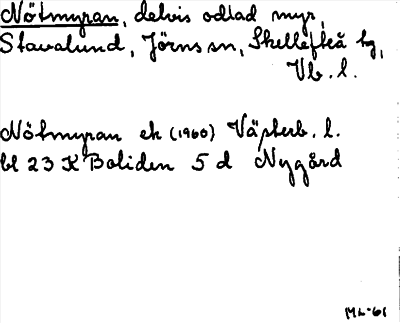 Nötmyran, delvis odlad myr,
Stavalund, Jörns sn, Skellefteå hg,
Vb. l.
Nötmyran ek (1960) Västerb. l.
bl 23 K Boliden 5 d Nygård
ML-61